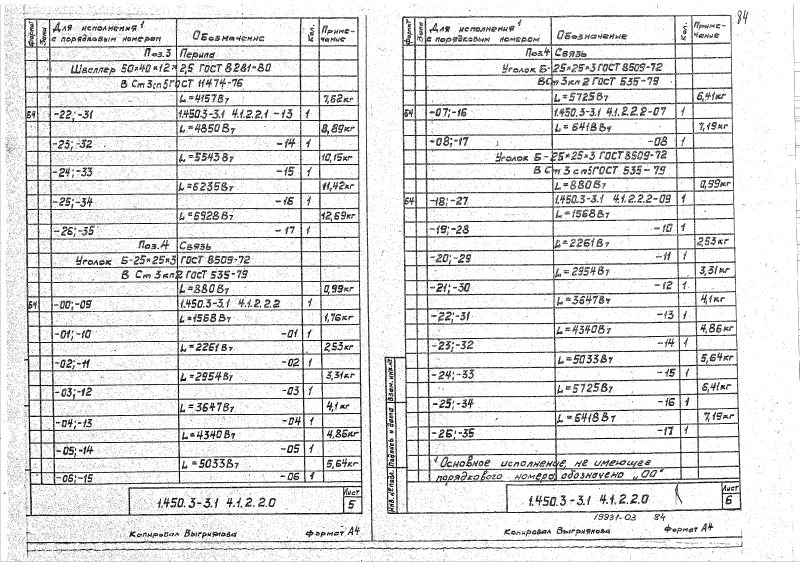 Формат Зона Для исполнения¹ с порядковым номером Обозначение Кол. Примечание
Поз.3 Перила
Швеллер 50×40×12×2,5 ГОСТ 8281-80
В Ст3сп5 ГОСТ 11474-76
L=4157 Вт 7,62кг
б4 -22;-31 1.450.3-3.1 4.1.2.2.1 -13 1
L=4850 Вт 8,89кг
-23;-32 -14 1
L=5543 Вт 10,15кг
-24;-33 -15 1
L=6235 Вт 11,42кг
-25;-34 -16 1
L=6928 Вт 12,69кг
-26;-35 -17 1
Поз.4 Связь
Уголок Б-25×25×3 ГОСТ 8509-72
В Ст 3кп2 ГОСТ 535-79
L=880 Вт 0,99кг
б4 -00;-09 1.450.3-3.1 4.1.2.2.2 1
L=1568 Вт 1,76кг
-01;-10 -01 1
L=2261 Вт 2,53кг
-02;-11 -02 1
L=2954 Вт 3,31кг
-03;-12 -03 1
L=3647 Вт 4,1кг
-04;-13 -04 1
L=4340 Вт 4,86кг
-05;-14 -05 1
L=5033 Вт 5,64кг
-06;-15 -06 1
1.450.3-3.1 4.1.2.2.0 Лист 5
Копировал Выгриянова Формат А4
84
Формат Зона Для исполнения¹ с порядковым номером Обозначение Кол. Примечание
Поз.4 Связь
Уголок Б-25×25×3 ГОСТ 8509-72
В Ст 3кп2 ГОСТ 535-79
L=5725 Вт 6,41кг
б4 -07;-16 1.450.3-3.1 4.1.2.2.2-07 1
L=6418 Вт 7,19кг
-08;-17 -08 1
Уголок Б-25×25×3 ГОСТ 8509-72
В Ст 3сп5 ГОСТ 535-79
L=880 Вт 0,99кг
б4 -18;-27 1.450.3-3.1 4.1.2.2.2-09 1
L=1568 Вт
-19;-28 -10 1
L=2261 Вт 2,53кг
-20;-29 -11 1
L=2954 Вт 3,31кг
-21;-30 -12 1
L=3647 Вт 4,1кг
-22;-31 -13 1
L=4340 Вт 4,86кг
-23;-32 -14 1
L=5033 Вт 5,64кг
-24;-33 -15 1
L=5725 Вт 6,41кг
-25;-34 -16 1
L=6418 Вт 7,19кг
-26;-35 -17 1
¹Основное исполнение, не имеющее
порядкового номера, обозначено „00"
Инв.№подл. Подпись и дата Взам.инв.№
1.450.3-3.1 4.1.2.2.0 Лист 6
19931-03 84
Копировал Выгриянова Формат А4